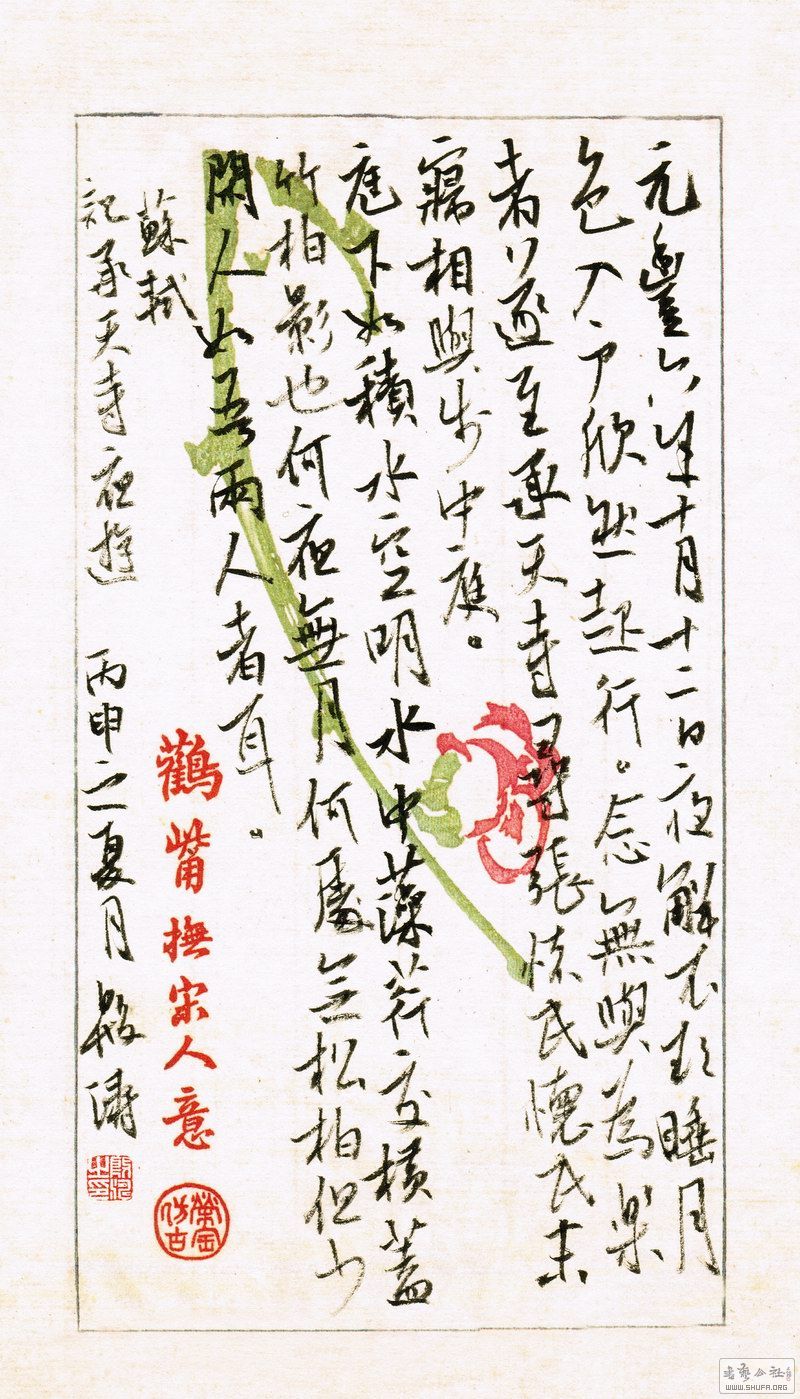 元豐六年十月十二日夜解衣欲睡月
色入戶欣然起行。念無與為樂
者遂至承天寺尋張懷民懷民未
寢相與步中庭。
庭下如積水空明水中藻荇交橫蓋
竹柏影也何夜無月何處無松柏但少
閑人如吾兩人者耳。
蘇軾
記承天寺夜遊 丙申之夏月 殷濤
鸛觜撫宋人意
榮宝仿古
書藝公社
WWW.SHUFA.ORG